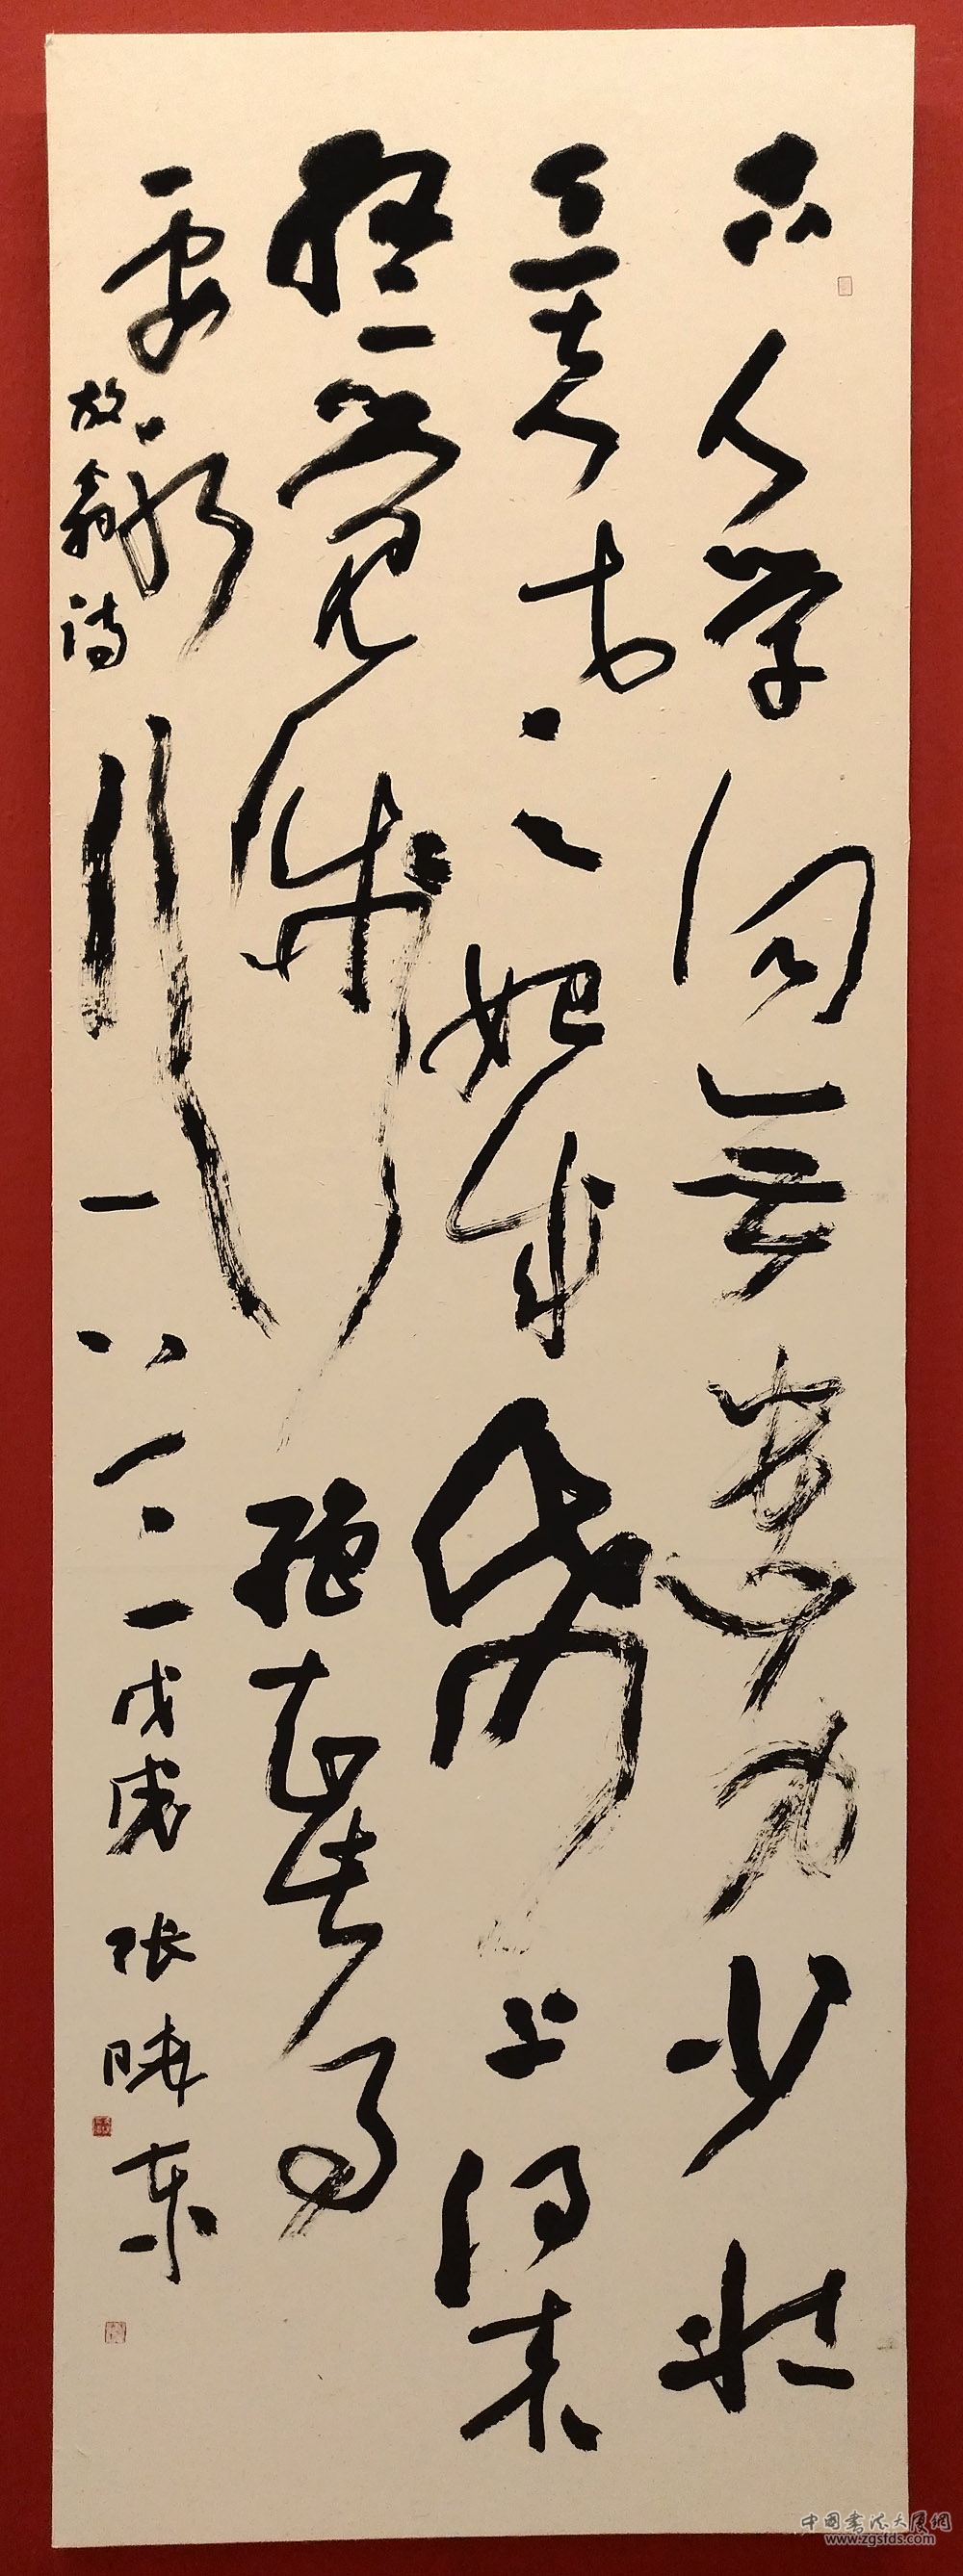 古人学问无遗力少壮
工夫老始成纸上得来
终觉浅绝知此事
要躬行一八一二戊戌张东
放翁诗
中国书法大厦网
www.zgsfds.com